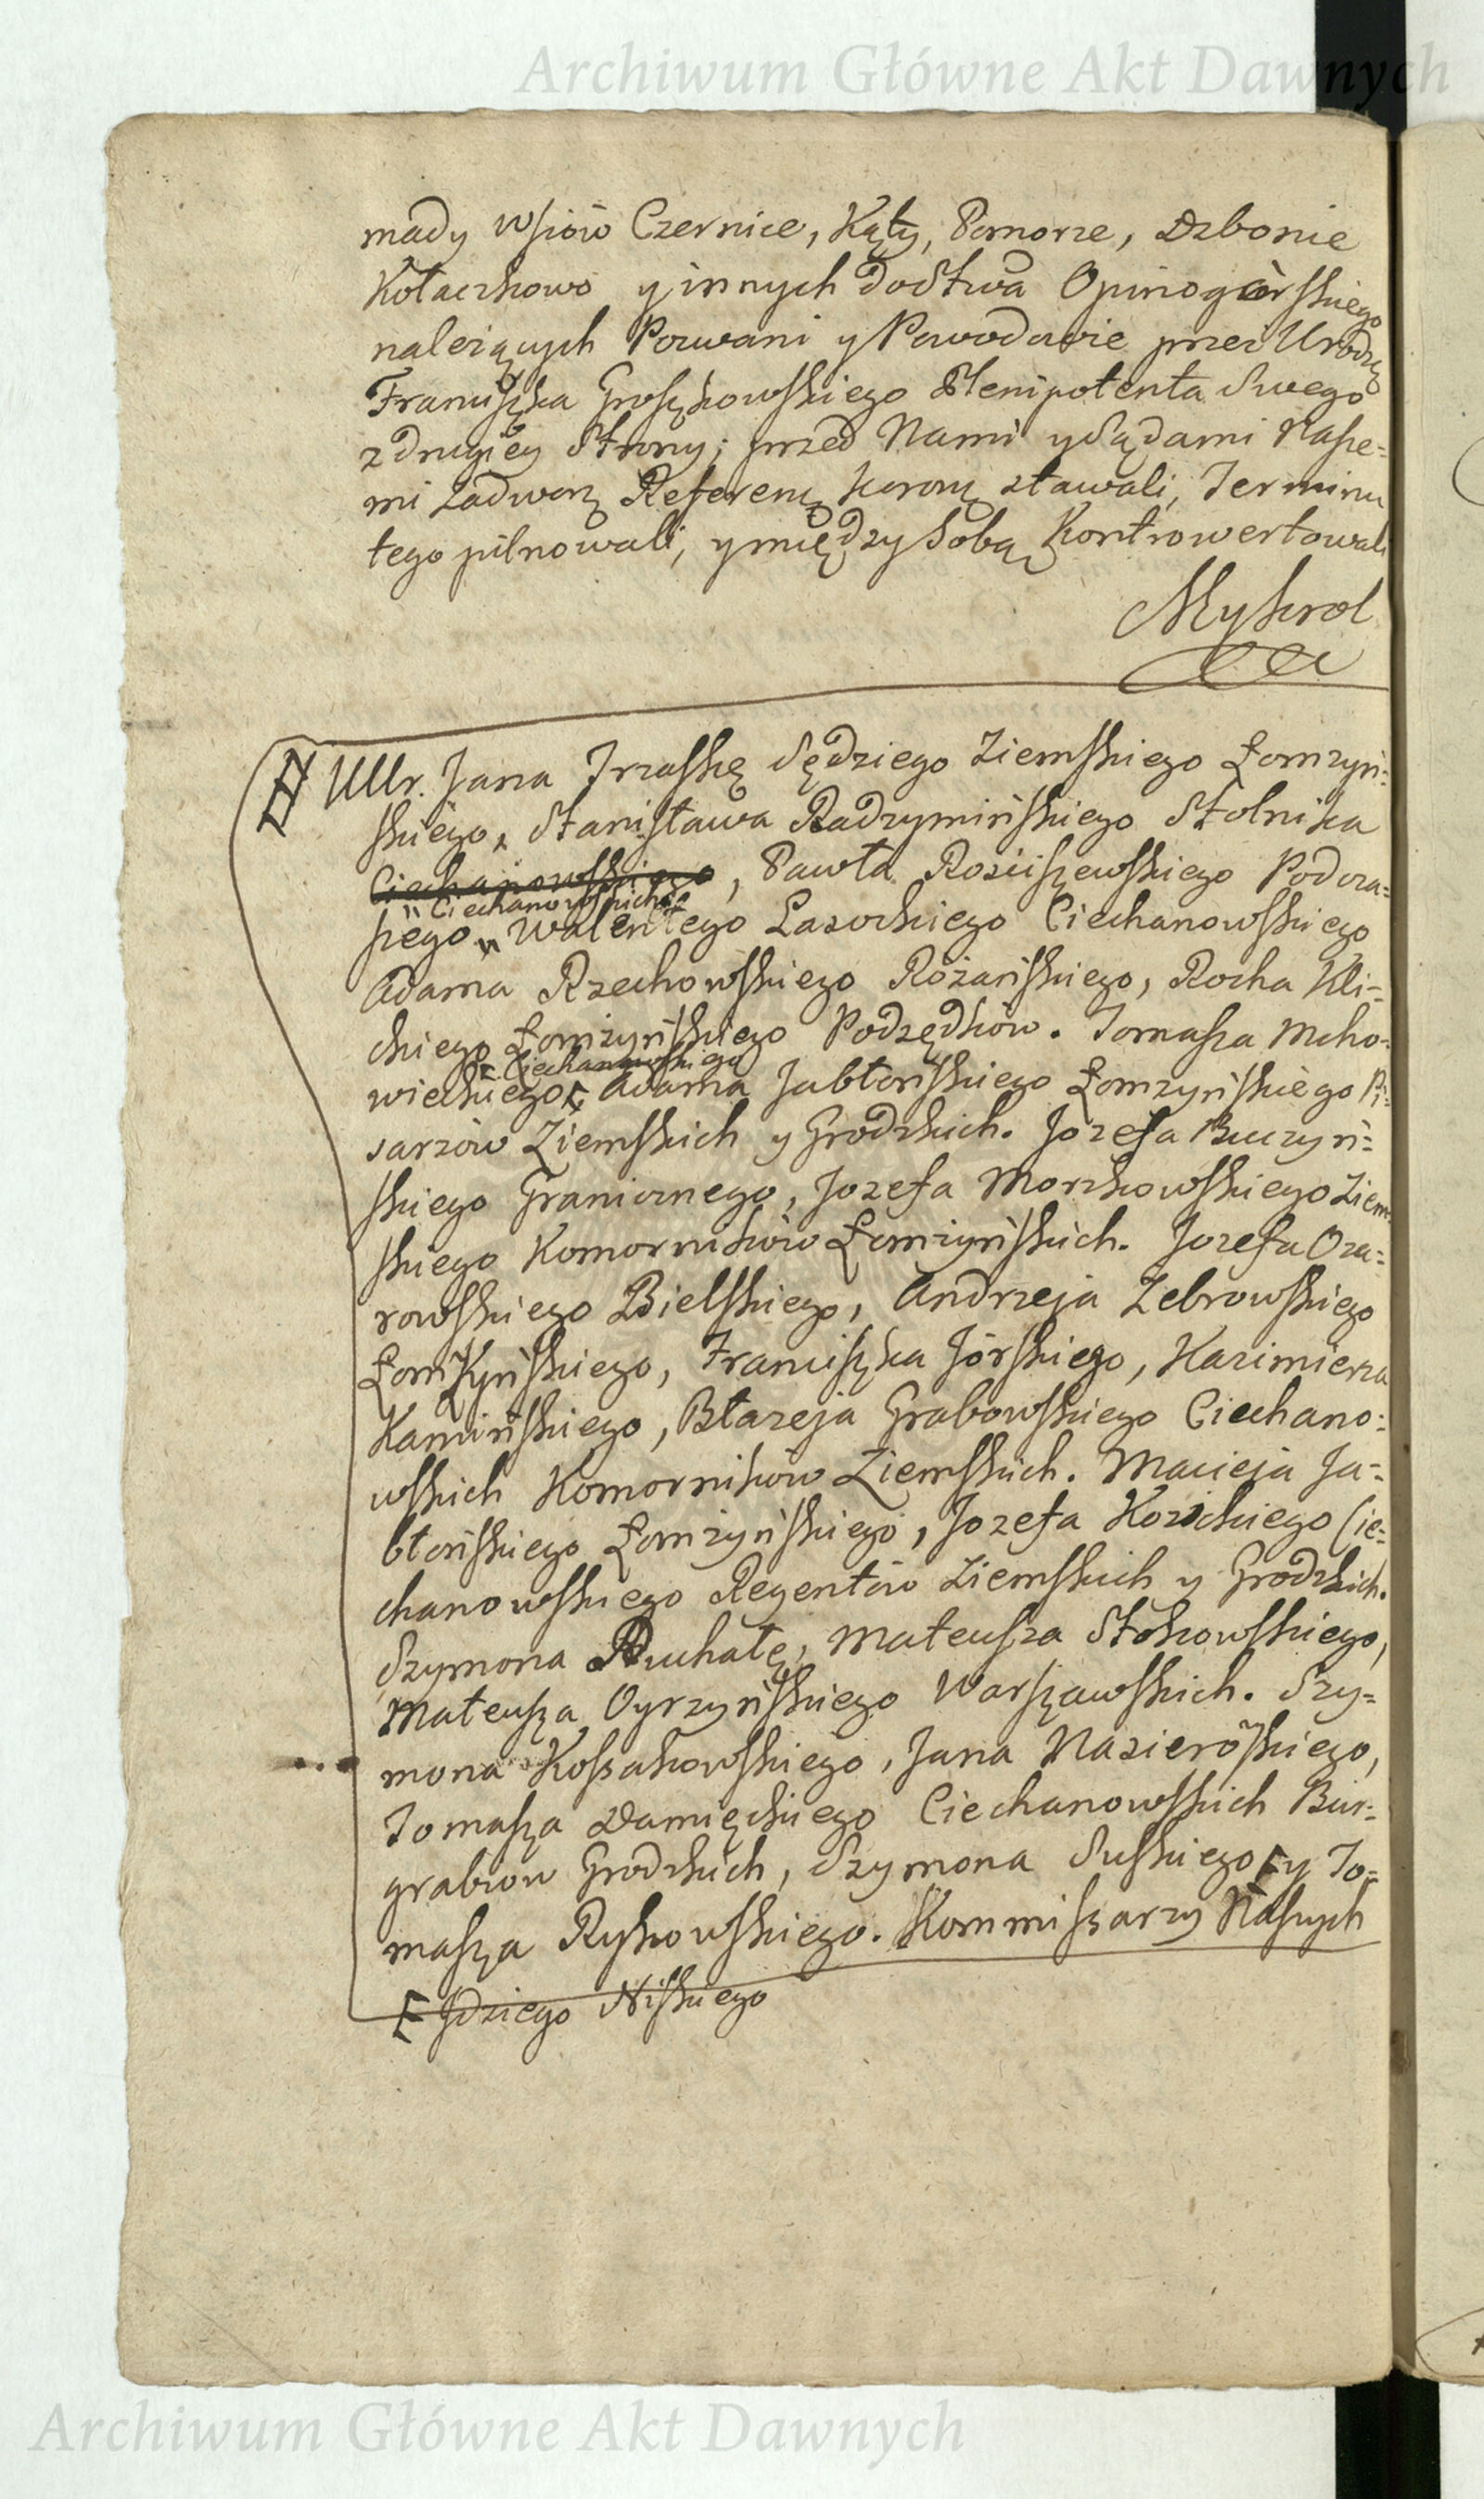 Archiwum Główne Akt Dawnych
mady wsiów Czernice, Kąty, Pomorze, Dzbonie
Kołaczkowo y innych do Stwa Opinogórskiego
należących Pozwani y Powodowie przez Urodzo
Franciszka Groszkowskiego Plenipotenta Swego
z drugiey Strony; przed Nami y Sądami Nasze=
mi Zadworą Referenę Koronę stawali, Terminu
tego pilnowali, y między Sobą Kontrowertowali
My Krol
Ullr. Jana Trzaskę Sędziego Ziemskiego Łomzyń=
skiego, Stanisława Radzymińskiego Stolnika
Ciechanowskiego, Pawła Rosciszewskiego Podcza=
" Ciechanowskich
szego " Walentego Lasockiego Ciechanowskiego
Adama Rzechowskiego Różańskiego, Rocha Kli=
ckiego Łomżyńskiego Podsędków. Tomasza Mcho=
Ciechanowskiego
wieckiego Adama Jabłońskiego Łomzyńskiego Pi=
sarzów Ziemskich y Grodzkich. Jozefa Buczyń=
skiego Granicznego, Jozefa Morzkowskiego Ziem
skiego Komorników Łomżyńskich. Jozefa Oza=
rowskiego Bielskiego, Andrzeja Zebrowskiego
Łomżyńskiego, Franciszka Górskiego, Kazimierza
Kamińskiego, Błazeja Grabowskiego Ciechano=
wskich Komorników Ziemskich. Macieja Ja=
błońskiego Łomżyńskiego, Jozefa Kozickiego Cie=
chanowskiego Regentów Ziemskich y Grodzkich.
Szymona Duchałę, Mateusza Stokowskiego,
Mateusza Oyrzyńskiego Warszawskich. Szy=
mona Kossakowskiego, Jana Nasierowskiego,
Tomasza Damięckiego Ciechanowskich Bur=
grabiow Grodzkich, Szymona Suskiego y To=
masza Rykowskiego. Kommissarzy Naszych
Idziego Niskiego
Archiwum Główne Akt Dawnych